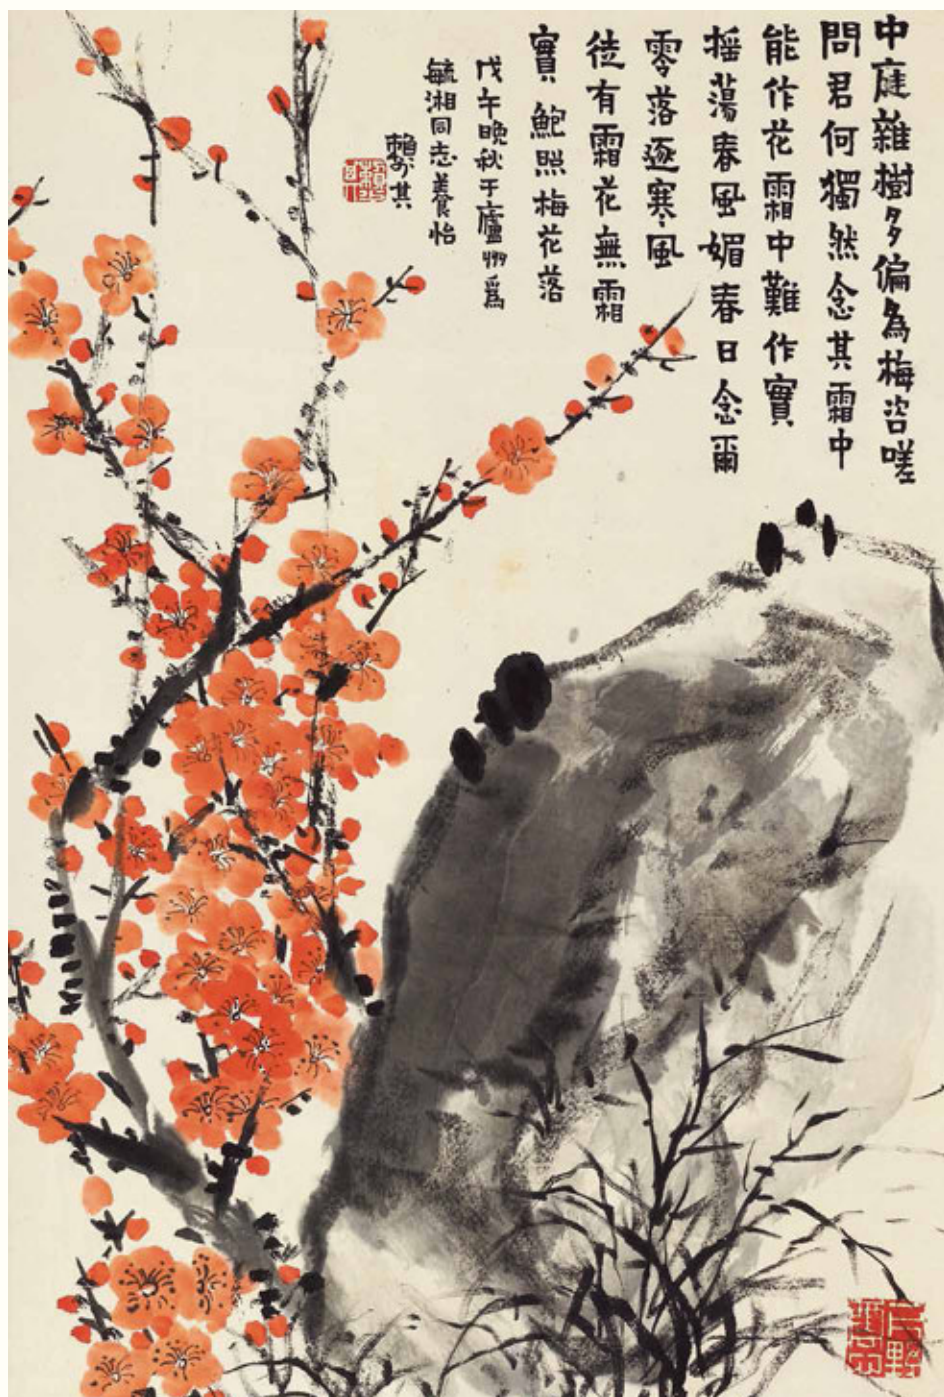 中庭雜樹多偏為梅咨嗟
問君何獨然念其霜中
能作花霜中難作實
搖蕩春風媚春日念爾
零落逐寒風
徒有霜花無霜
實 鮑照梅花落
戊午晚秋于廬州爲
毓湘同志養怡
賴少其